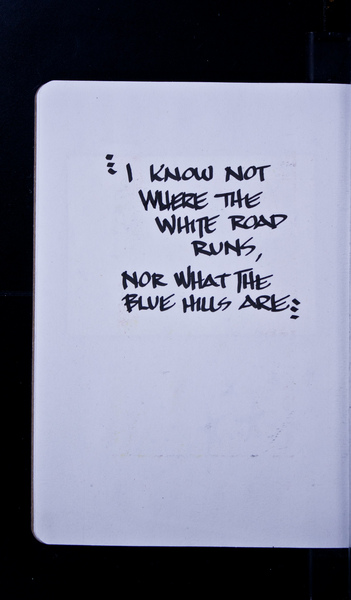 I KNOW NOT
WHERE THE
WHITE ROAD
RUNS,
NOR WHAT THE
BLUE HILLS ARE